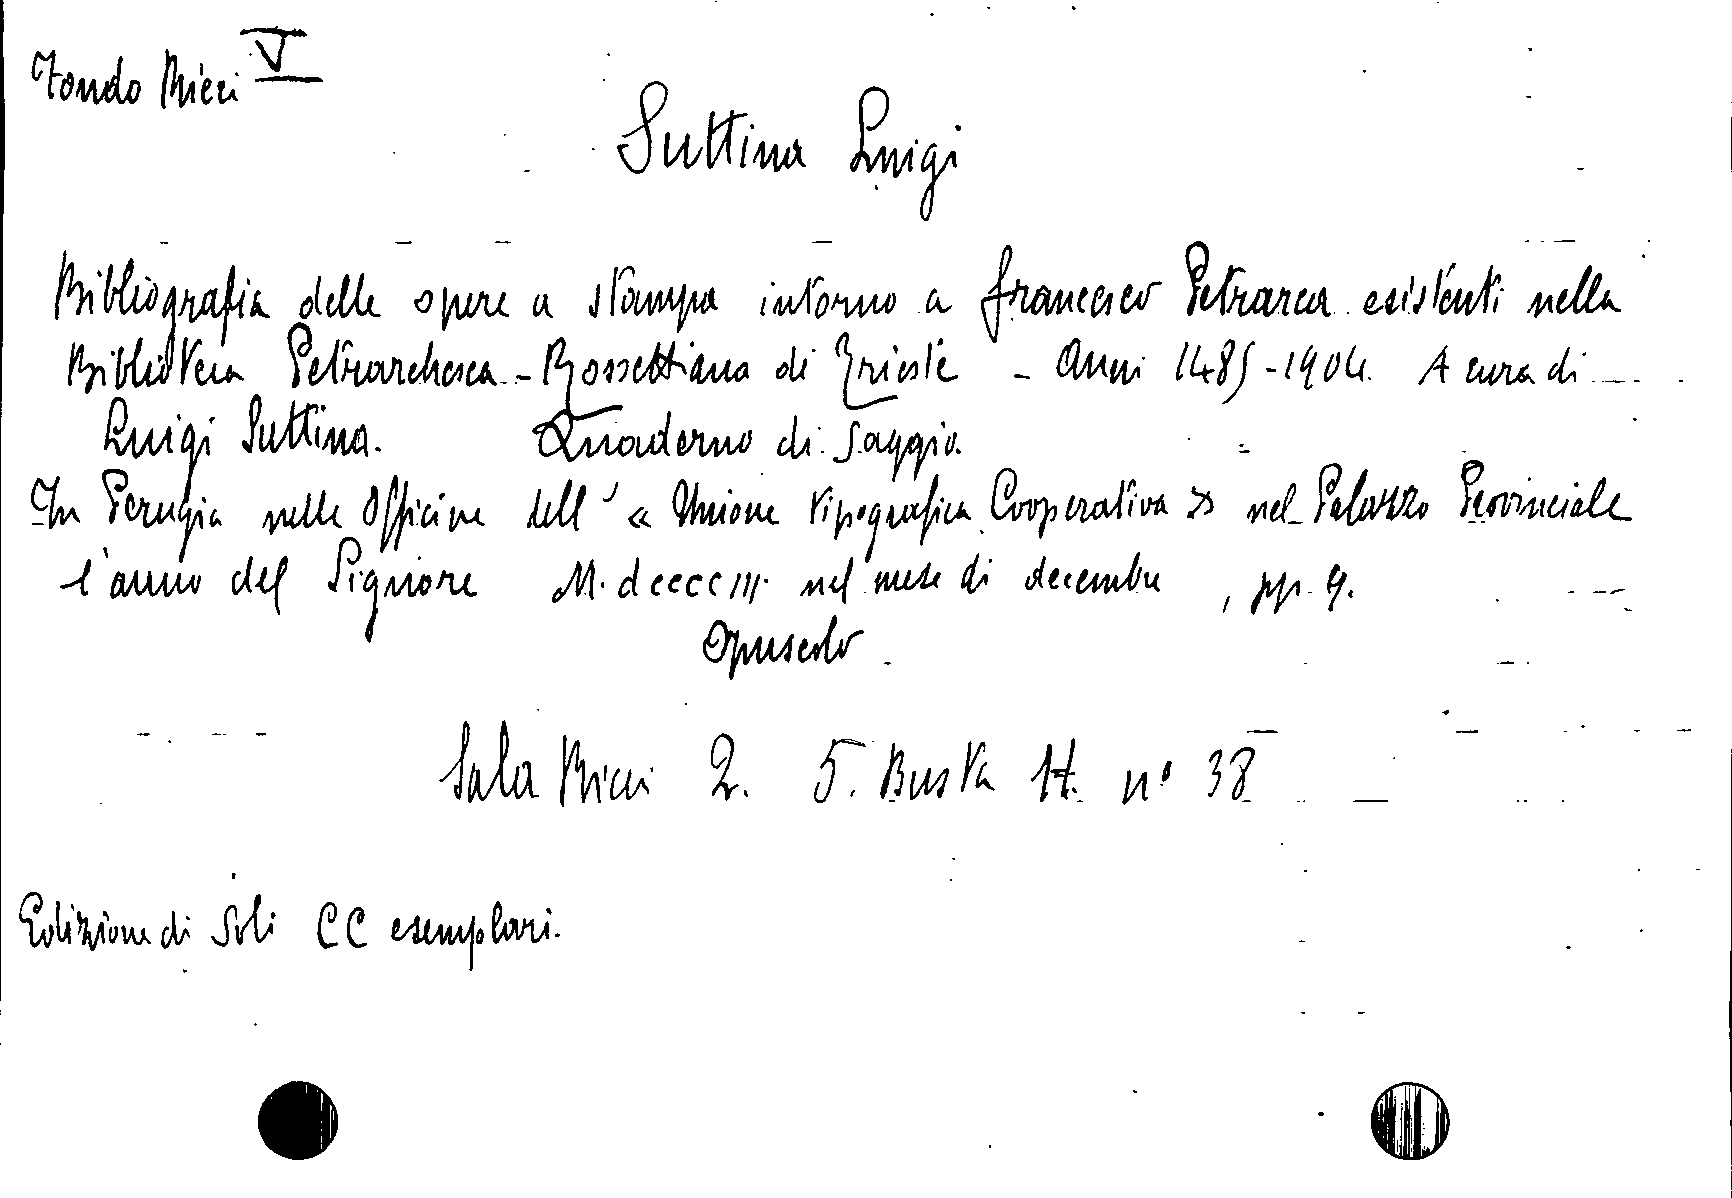 Fondo Ricci V
Suttina Luigi
Bibliografia delle opere a stampa intorno a Francesco Petrarca esistenti nella
Biblioteca Petrarchesca - Rossettiana di Trieste - Anni 1485-1904. A cura di
Luigi Suttina. Quaderno di Saggio.
In Perugia nelle Officine dell' « Unione Tipografica Cooperativa » nel Palazzo Provinciale
l'anno del Signore M. dcccc III. nel mese di decembre, pp. 9.
Opuscolo
Sala Ricci 2. 5. Busta 17. n° 38
Edizione di Soli CC esemplari.